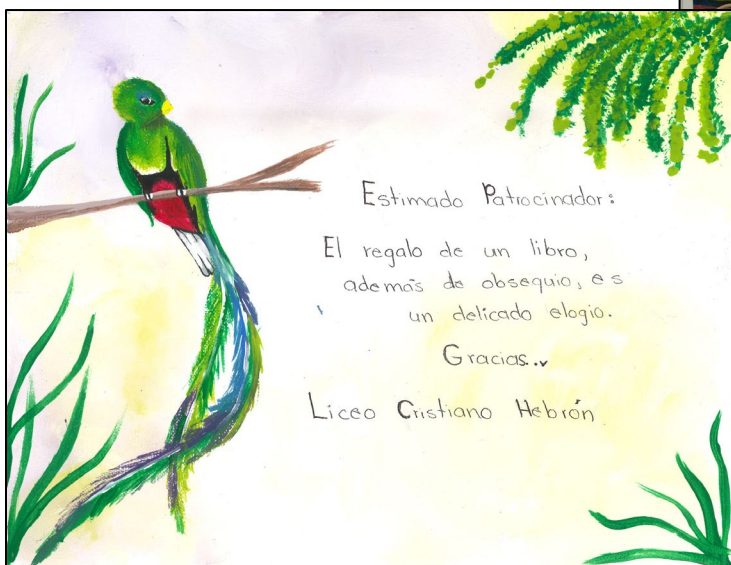 Estimado Patrocinador:
El regalo de un libro,
además de obsequio, es
un delicado elogio.
Gracias..
Liceo Cristiano Hebrón